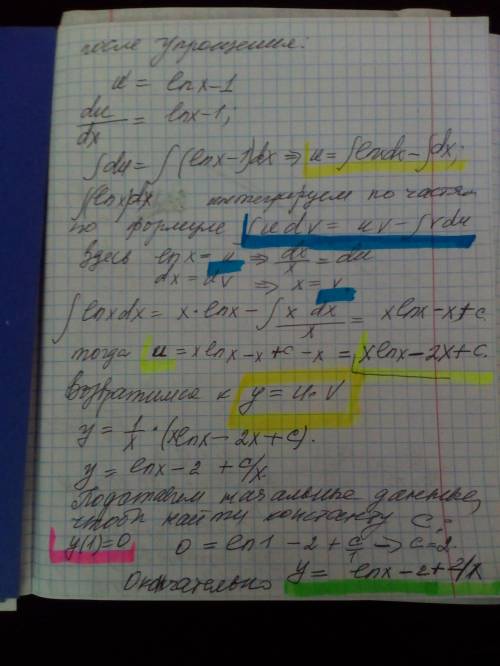 после упрощения:
u' = lnx-1
du/dx = lnx-1;
∫du = ∫(lnx-1)dx ⇒ u = ∫lnxdx - ∫dx;
∫(lnx)dx интегрируем по частям
по формуле ∫u dv = uv - ∫v du
Здесь lnx = u ⇒ dx/x = du
dx = dv ⇒ x = v
∫lnx dx = x·lnx - ∫ x dx/x = xlnx - x + c
тогда u = xlnx - x + c - x = xlnx - 2x + c.
Возвратимся к y = u·v
y = 1/x · (xlnx - 2x + c).
y = lnx - 2 + c/x.
Подставим начальные данные,
чтобы найти константу C:
y(1)=0 0 = ln1 - 2 + c/1 → c = 2.
Окончательно y = lnx - 2 + 2/x